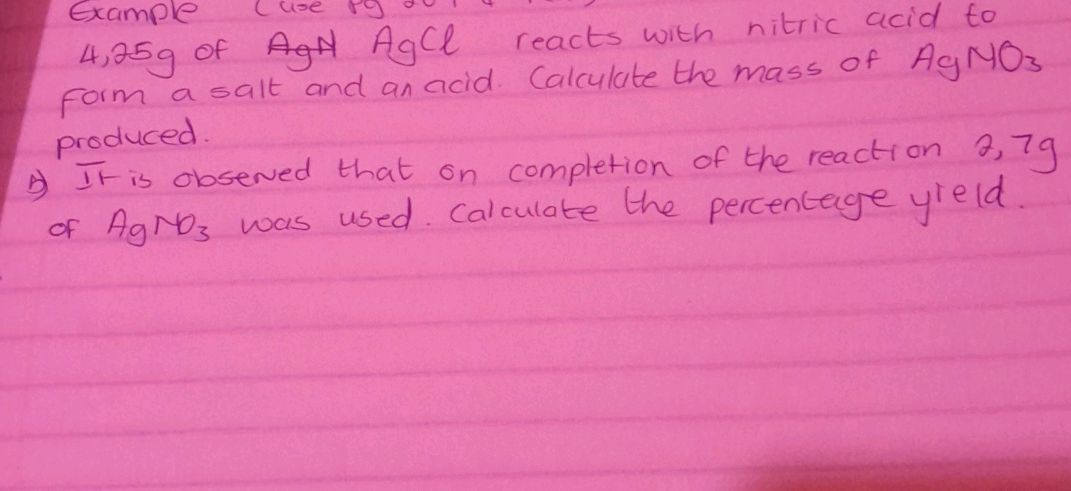 Example (use pg
4,25g of AgN AgCl reacts with nitric acid to
form a salt and an acid. Calculate the mass of AgNO3
produced.
b) It is observed that on completion of the reaction 2,7g
of AgNO3 was used. Calculate the percentage yield.